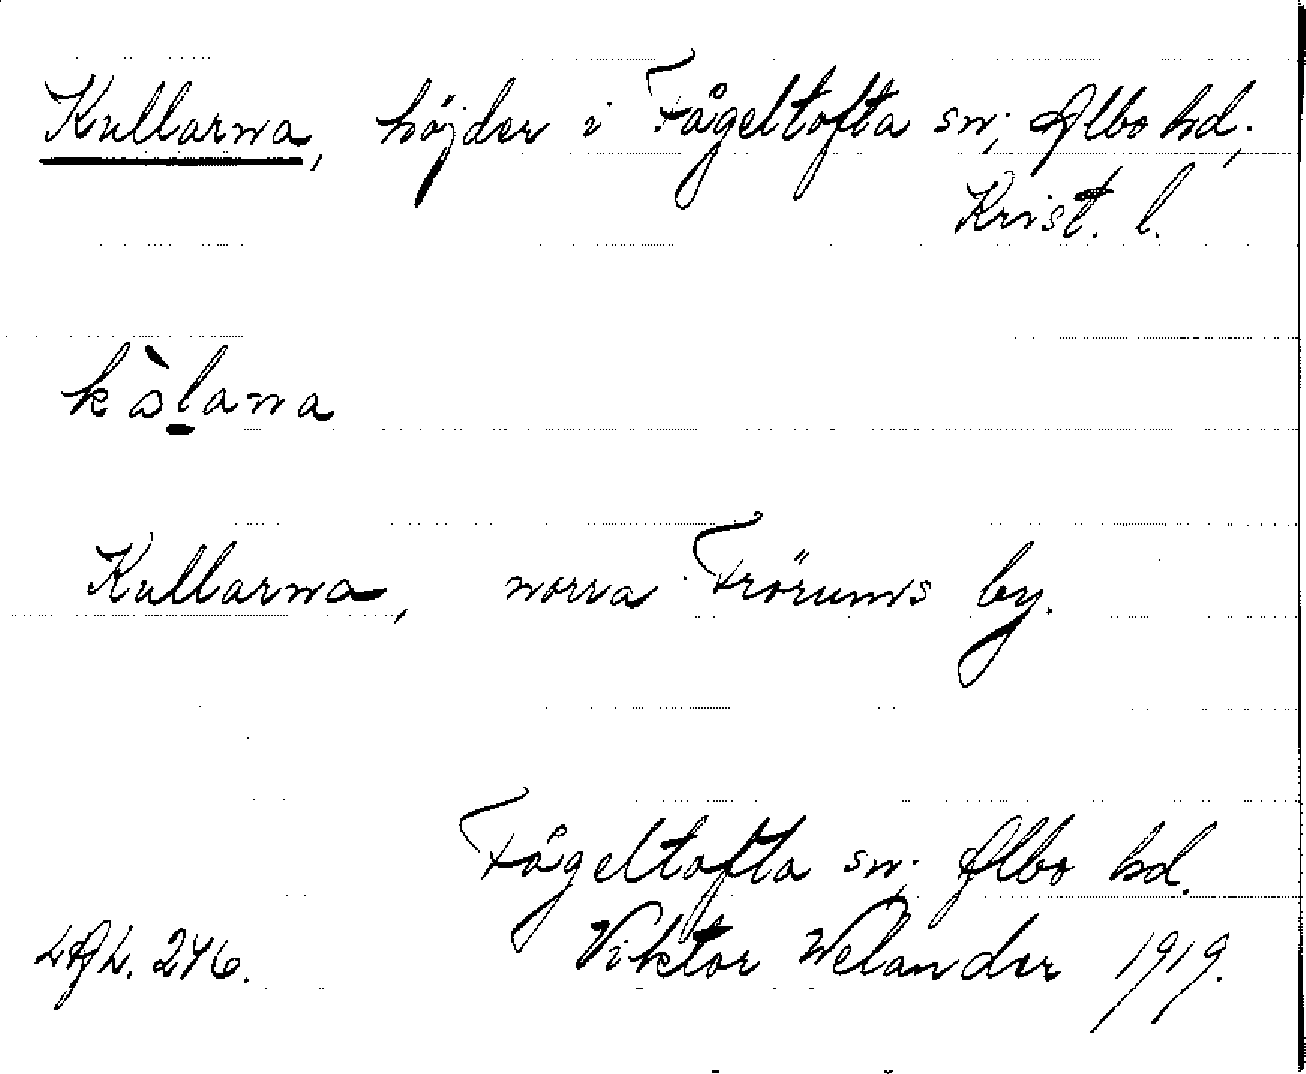 Kullarna, höjder i Fågeltofta sn; Albo hd;
Krist. l.
kòlarna
Kullarna, norra Frörums by.
Fågeltofta sn; Albo hd.
LAL. 246. Viktor Welander 1919.